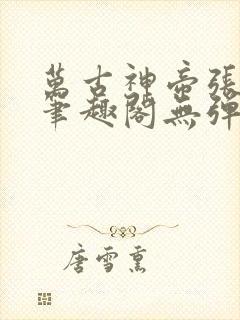 萬古神帝張
筆趣閣無彈
唐雪薰